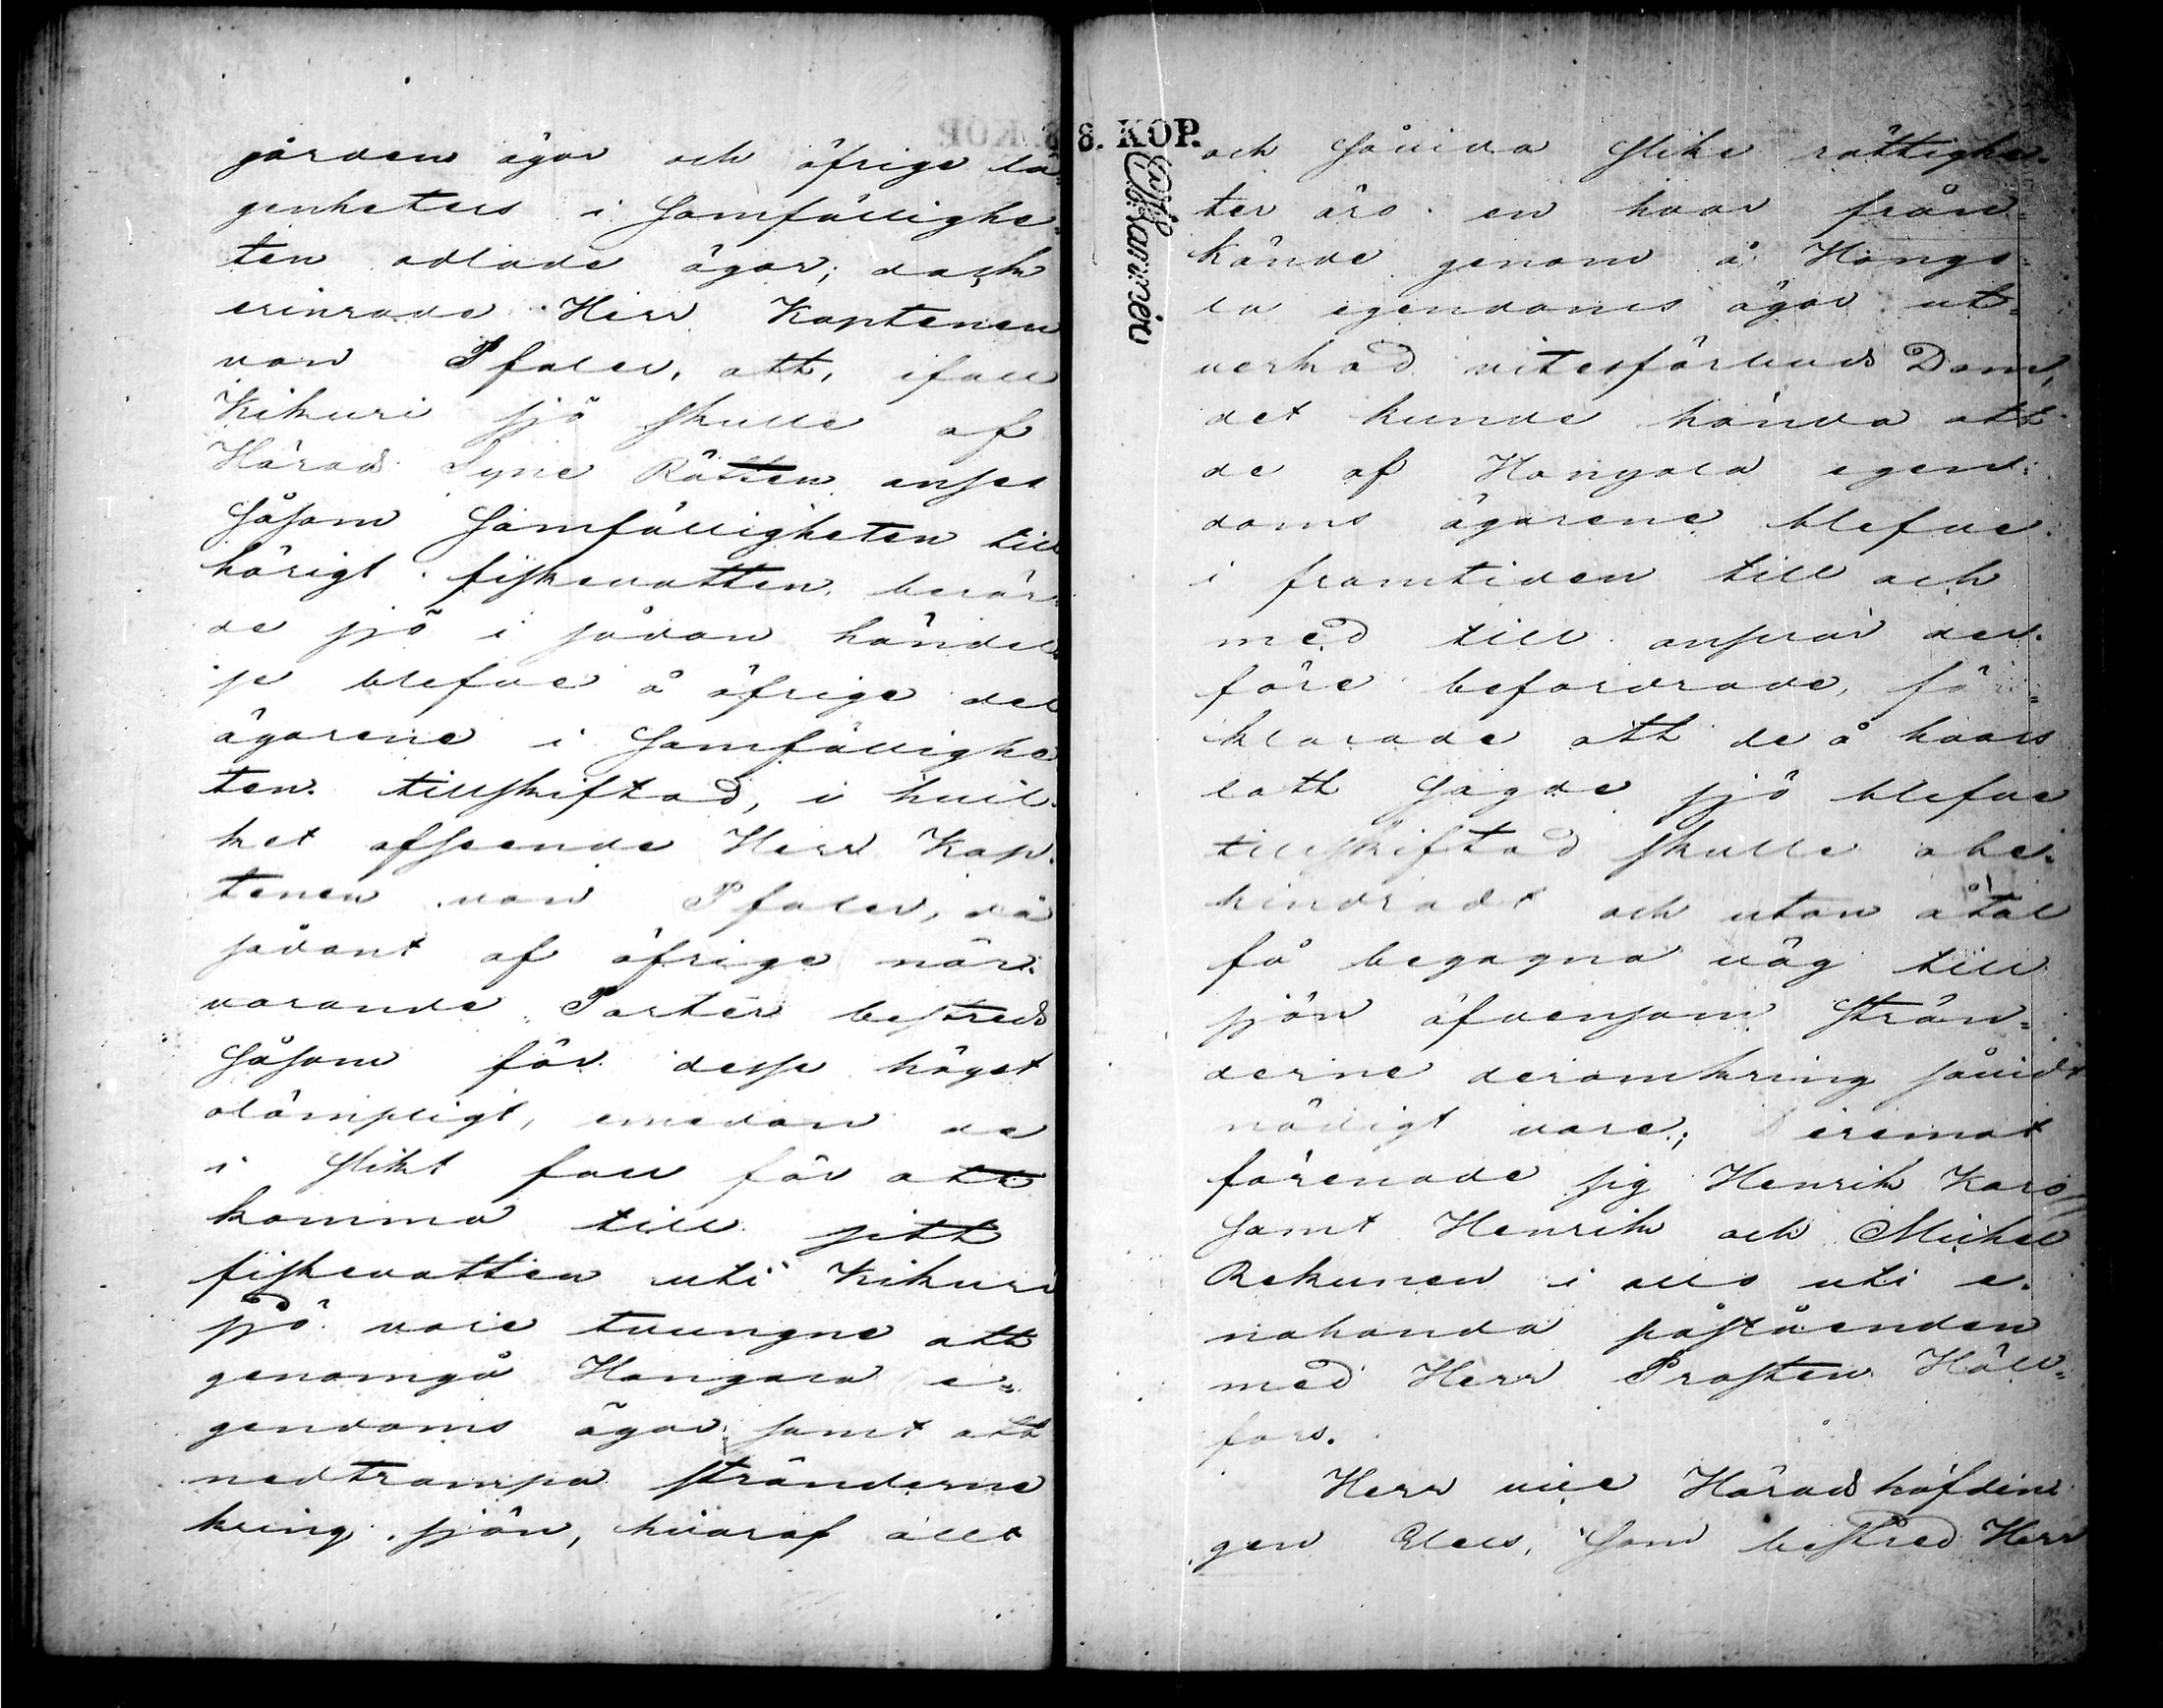 gården ägor och öfrige lä-
genheters i samfällighe-
ten odlade ägor; dock
erinrade Herr Kaptenen
von Pfaler, att, ifall
Kikuri sjö skulle af
Härads Syne Rätten anses
såsom samfälligheten till
hörigt fiskevatten, berör
de sjö i sådan händel
se blefve å öfrige del
ägarene i samfällighe
ten tillskiftad, i hvil-
ket afseende Herr Kap-
tenen von Pfaler, då
sådant af öfrige när-
varande Parter bestreds
såsom för desse högst
olämpligt, emedan de
i slikt fall för att
komma till sitt
fiskevatten uti Kikuri
sjö vore tvungne att
genomgå Hongola e-
gendoms ägor samt att
nedtrampa stränderne
kring sjön, hvaraf allt
8. KOP.
och såvida slike rättighe-
ter äro en hvar från-
kände genom å Hongo-
la egendoms ägor ut-
verkad vitesförbuds Dom,
det kunde hända att
de af Hongola egen-
doms ägarene blefve
i framtiden till och
med till ansvar der-
före befordrade, för-
klarade att de å hvars
lott sagde sjö blefve
tillskiftad skulle obe-
hindradt och utan åtal
få begagna väg till
sjön äfvensom strän-
derne deromkring såvidt
nödigt vore; Deremot
förenade sig Henrik Karo
samt Henrik och Michel
Rekunen i allo uti e-
nahanda påståenden
med Herr Prosten Häll-
fors.
Herr vice Häradshöfdin
gen Elers, som bestred Herr